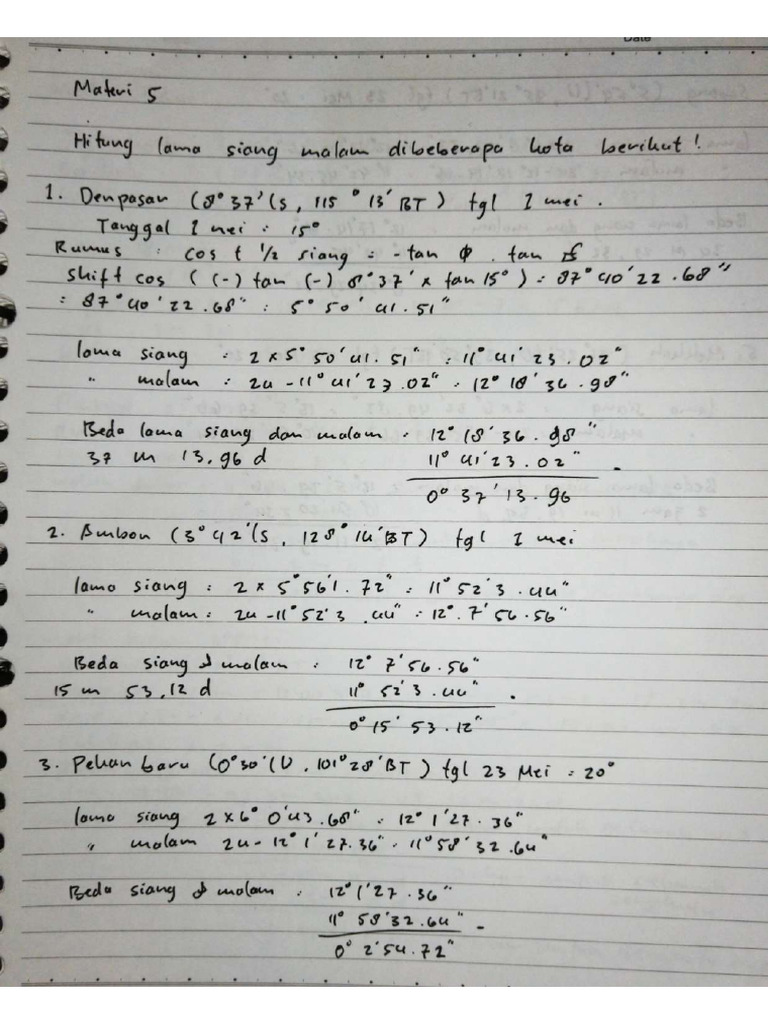 Date
Materi 5
Hitung lama siang malam dibeberapa kota berikut!
1. Denpasar (8° 37' LS, 115° 13' BT) tgl 1 mei.
Tanggal 1 mei : 15°
Rumus : cos t 1/2 siang = -tan ϕ . tan
shift cos ( (-) tan (-) 8° 37' x tan 15° ) = 87° 40' 22.68"
: 87° 40' 22.68" : 5° 50' 41.51"
lama siang : 2 x 5° 50' 41.51" : 11° 41' 23.02"
" malam : 24 - 11° 41' 23.02" : 12° 18' 36.98"
Beda lama siang dan malam : 12° 18' 36.98"
37 m 13,96 d 11° 41' 23.02" -
0° 37' 13.96
2. Ambon (3° 42' LS, 128° 14' BT) tgl 1 mei
lama siang : 2 x 5° 56' 1.72" : 11° 52' 3.44"
" malam : 24 - 11° 52' 3.44" : 12°. 7' 56.56"
Beda siang & malam : 12° 7' 56.56"
15 m 53,12 d 11° 52' 3.44" -
0° 15' 53.12"
3. Pekan baru (0° 30' LU, 101° 28' BT) tgl 23 Mei : 20°
lama siang 2 x 6° 0' 43.68" : 12° 1' 27.36"
" malam 24 - 12° 1' 27.36" : 11° 58' 32.64"
Beda siang & malam : 12° 1' 27.36"
11° 58' 32.64" -
0° 2' 54.72"